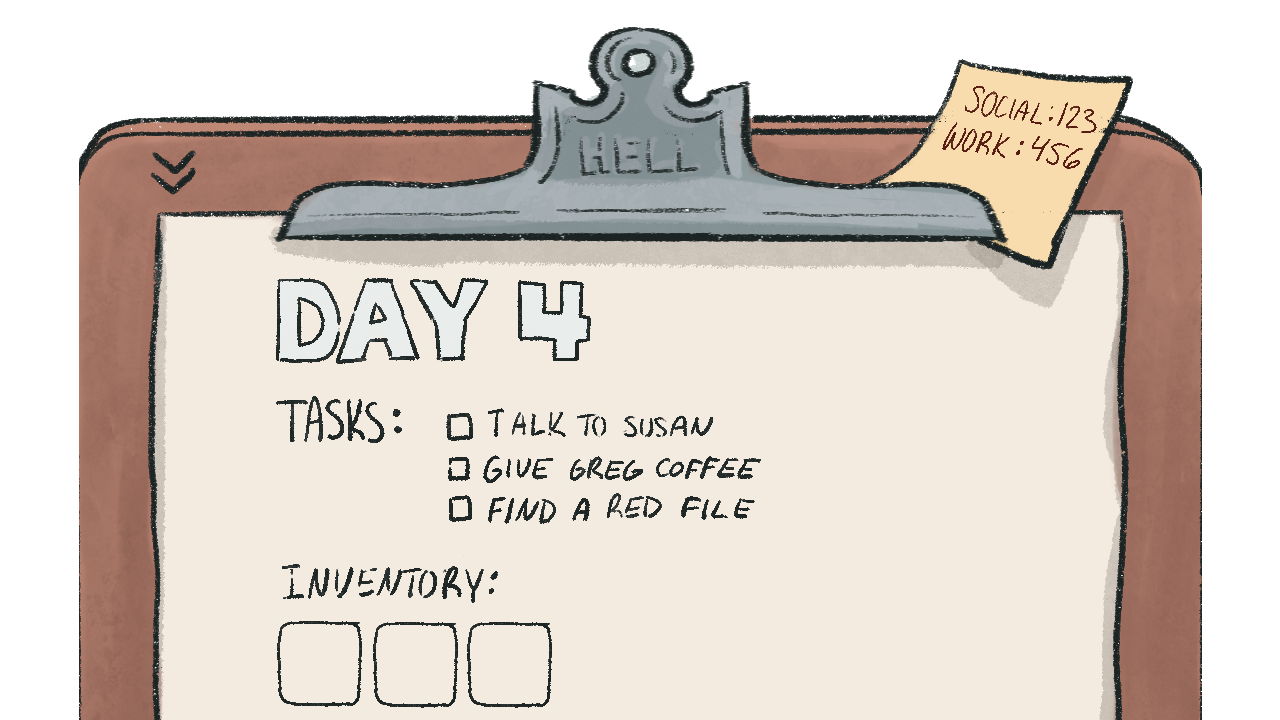 HELL
SOCIAL:123
WORK:456
DAY 4
TASKS:
TALK TO SUSAN
GIVE GREG COFFEE
FIND A RED FILE
INVENTORY: